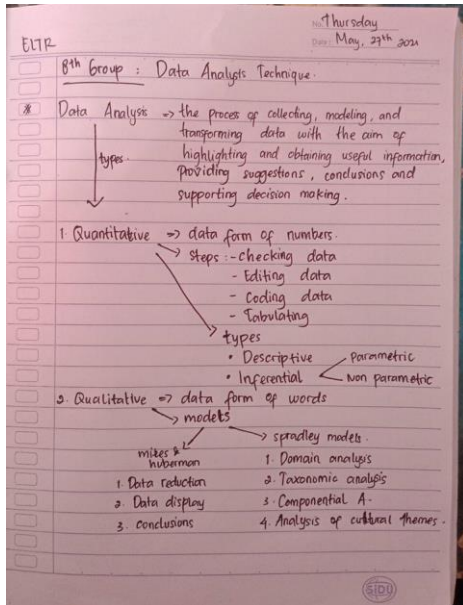 No. Thursday
Date: May, 27th 2021
ELTR
8th Group : Data Analysts Technique.
* Data Analysis => the process of collecting, modeling, and
transforming data with the aim of
types. highlighting and obtaining useful information,
Providing suggestions, conclusions and
supporting decision making.
1. Quantitative => data form of numbers.
steps : - Checking data
- Editing data
- Coding data
- Tabulating
types
• Descriptive
parametric
• Inferential
Non parametric
2. Qualitative => data form of words
models
miles &
huberman
1. Data reduction
2. Data display
3. conclusions
spradley models.
1. Domain analysis
2. Taxonomic analysis
3. Componential A.
4. Analysis of cultural themes.
SIDU